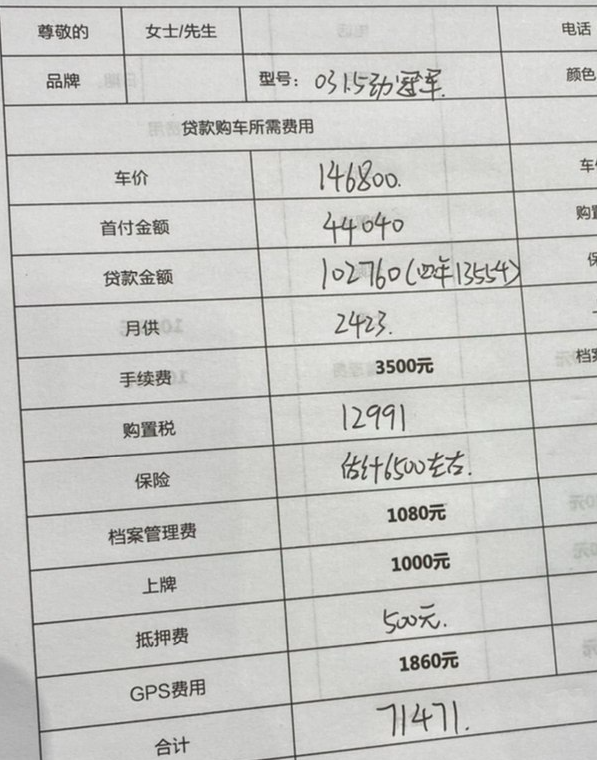 尊敬的 女士/先生 电话
品牌 型号：031.5劲冠军. 颜色
贷款购车所需费用
车价 146800.
首付金额 44040 购置
贷款金额 102760(四年13554) 保
月供 2423.
手续费 3500元 档案
购置税 12991
保险 估计6500左右.
档案管理费 1080元
上牌 1000元
抵押费 500元.
GPS费用 1860元
合计 71471.